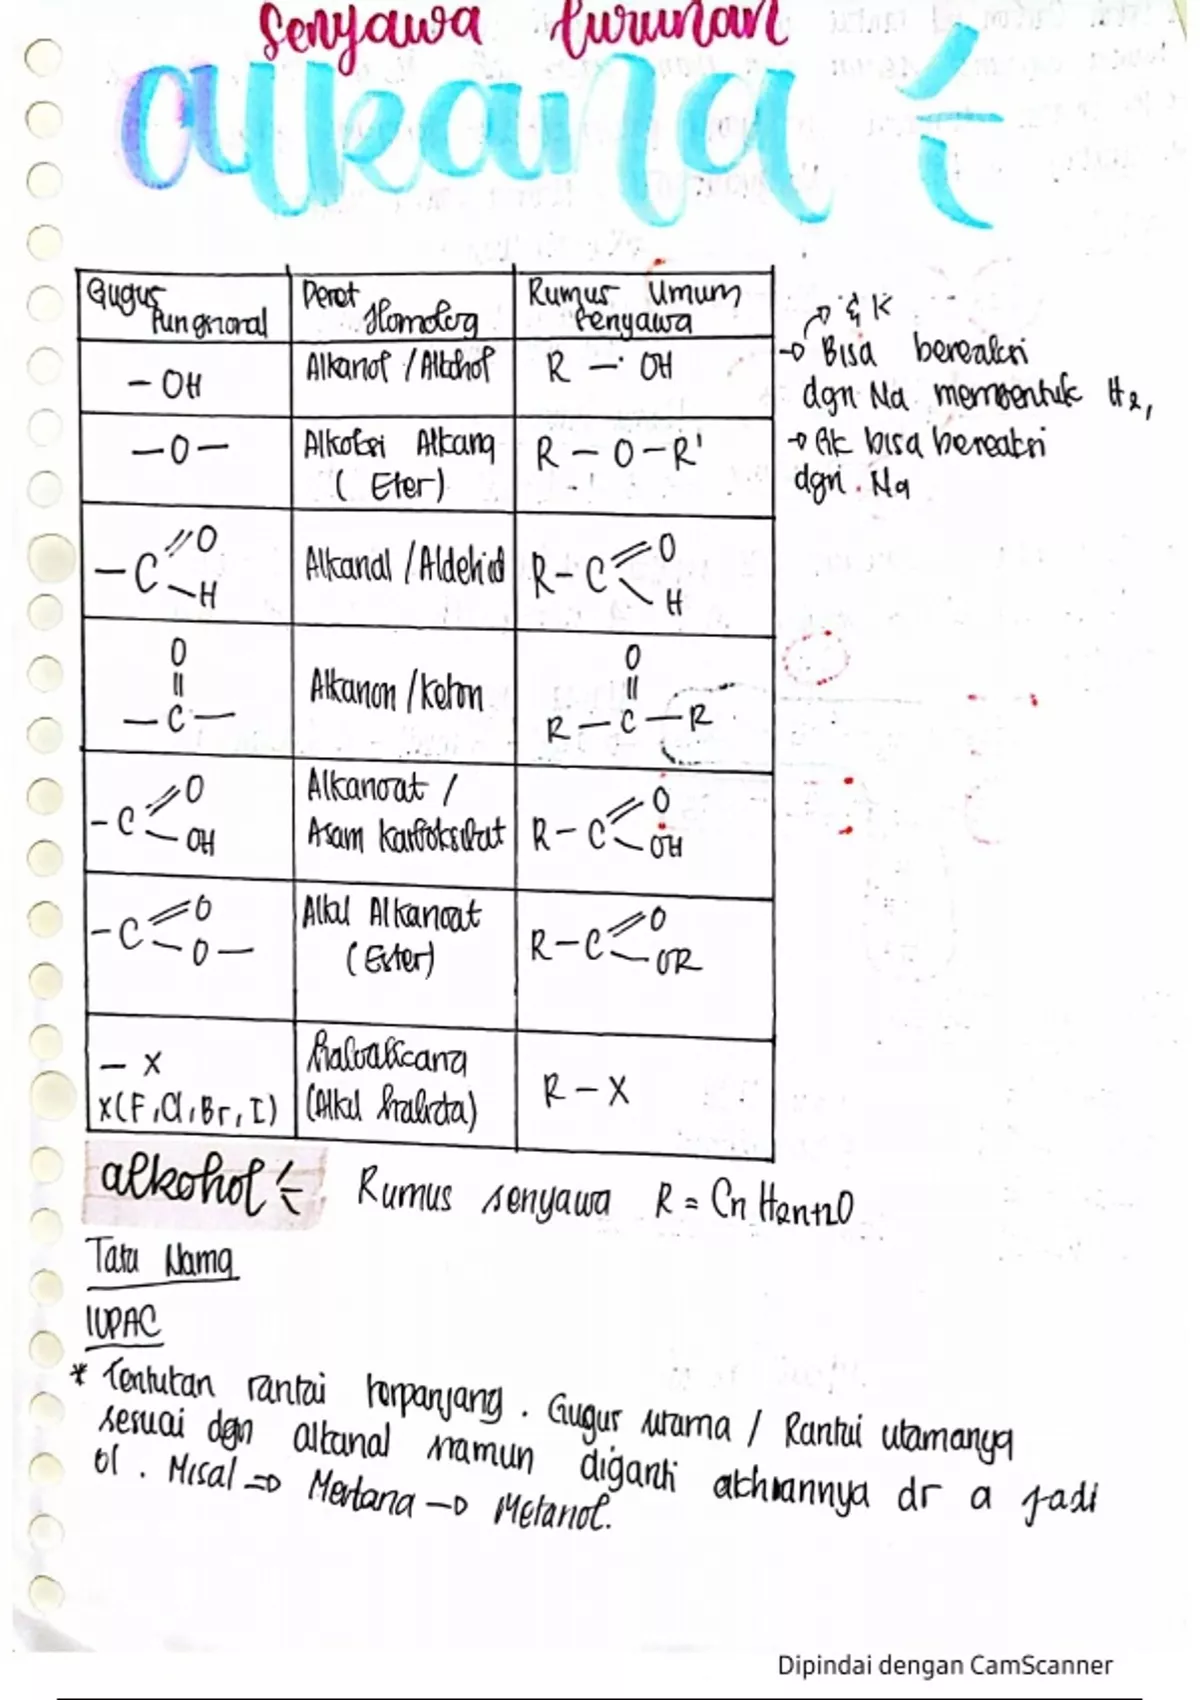 Senyawa turunan
alkana
Gugus Fungsional | Deret Homolog | Rumus Umum Senyawa
- OH | Alkanol / Alkohol | R - OH
- O - | Alkoksi Alkana (Eter) | R - O - R'
- C =O - H | Alkanal / Aldehid | R - C =O - H
O || - C - | Alkanon / keton | O || R - C - R
- C =O - OH | Alkanoat / Asam Karboksilat | R - C =O - OH
- C =O - O - | Alkil Alkanoat (Ester) | R - C =O - OR
- X X(F, Cl, Br, I) | haloalkana (Alkil halida) | R - X
& K
→ Bisa bereaksi
dgn Na membentuk H2,
→ gk bisa bereaksi
dgn. Na
alkohol Rumus senyawa R = CnH2n+2O
Tata Nama
IUPAC
* Tentukan rantai terpanjang. Gugus utama / Rantai utamanya
sesuai dgn alkanal namun diganti akhirannya dr a jadi
ol. Misal ⇒ Metana → Metanol.
Dipindai dengan CamScanner